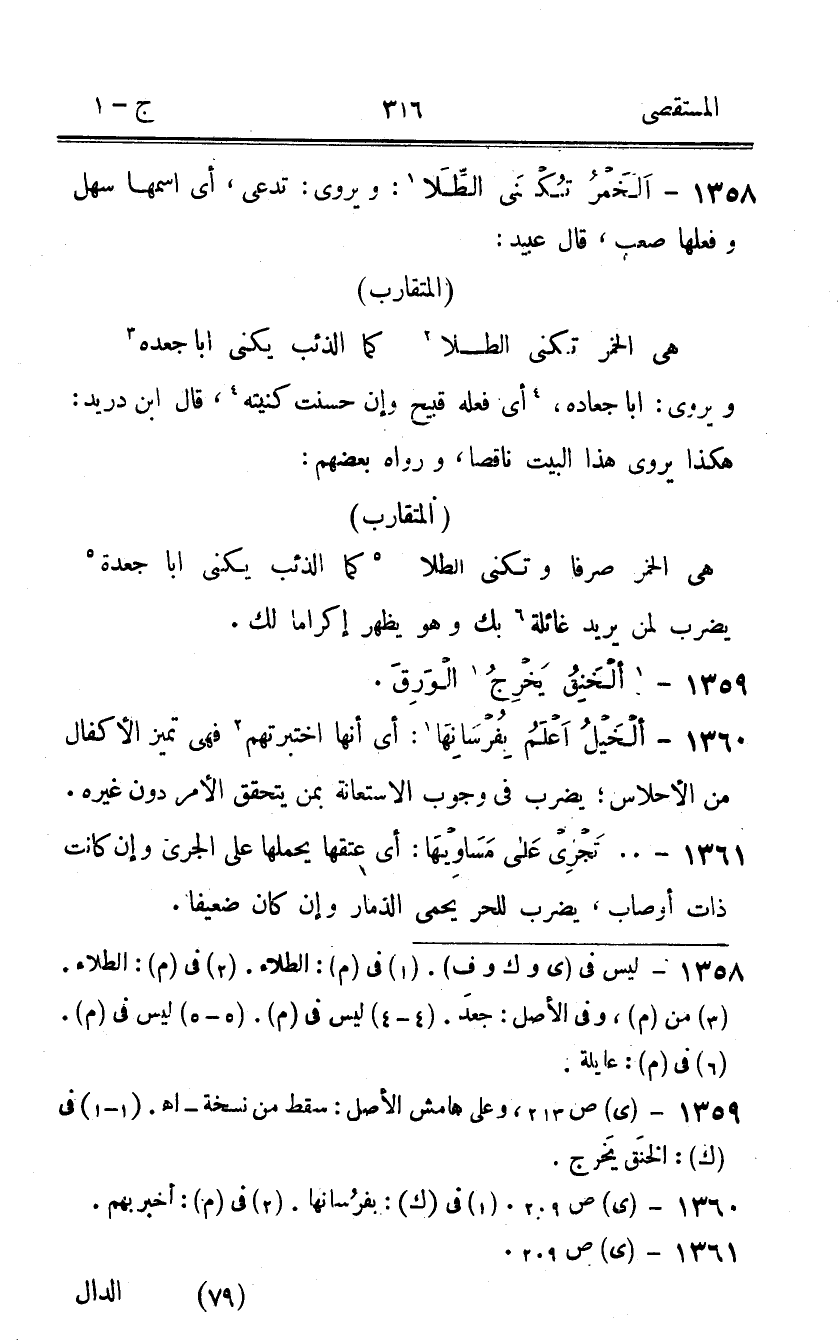 المستقصى ٣١٦ ج – ١
١٣٥٨ – اَلْخَمْرُ تُكْنَى الطِّلَا ١ : و يروى : تدعى ، أى اسمها سهل
و فعلها صعب ، قال عبيد :
(المتقارب)
هى الخمر تكنى الطلا ٢ كما الذئب يكنى ابا جعده ٣
و يروى : ابا جعاده ، ٤ أى فعله قبيح وإن حسنت كنيته ٤ ، قال ابن دريد :
هكذا يروى هذا البيت ناقصا ، و رواه بعضهم :
(المتقارب)
هى الخمر صرفا و تكنى الطلا ٥ كما الذئب يكنى ابا جعدة ٥
يضرب لمن يريد غائلة ٦ بك و هو يظهر إكراما لك .
١٣٥٩ – ١ اَلْخَنِقُ يُخْرِجُ ١ الْوَرِقَ .
١٣٦٠ – اَلْخَيْلُ اَعْلَمُ بِفُرْسَانِهَا ١ : أى أنها اختبرتهم ٢ فهى تميز الأكفال
من الأحلاس ؛ يضرب فى وجوب الاستعانة بمن يتحقق الأمر دون غيره .
١٣٦١ – .. تَجْرِىْ عَلٰى مَسَاوِيْهَا : أى عتقها يحملها على الجرى وإن كانت
ذات أوصاب ، يضرب للحر يحمى الذمار وإن كان ضعيفا .
١٣٥٨ – ليس فى (ى و ك و ف) . (١) فى (م) : الطلاء . (٢) فى (م) : الطلاء .
(٣) من (م) ، وفى الأصل : جعد . (٤-٤) ليس فى (م) . (٥-٥) ليس فى (م) .
(٦) فى (م) : عايلة .
١٣٥٩ – (ى) ص ٢١٣ ، وعلى هامش الأصل : سقط من نسخة – اه . (١-١) فى
(ك) : الخنَق يَخرج .
١٣٦٠ – (ى) ص ٢٠٩ . (١) فى (ك) : بفرُسانها . (٢) فى (م) : أخبر بهم .
١٣٦١ – (ى) ص ٢٠٩ .
(٧٩) الدال